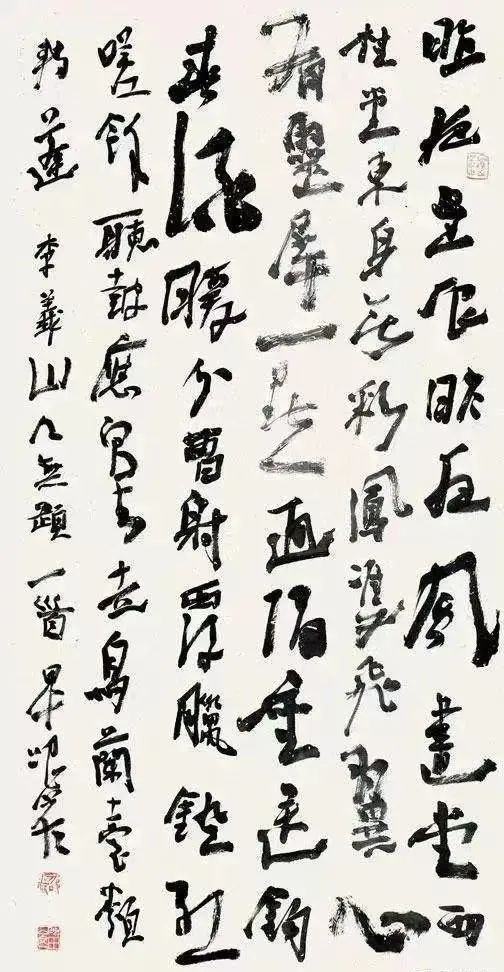 昨夜星辰昨夜風畫西
桂堂東身無彩鳳雙飛翼心
有靈犀一點通隔座送鈎
春酒暖分曹射覆臘鐙紅
嗟餘聽鼓應官去走馬蘭臺類
轉蓬 李義山無題一首